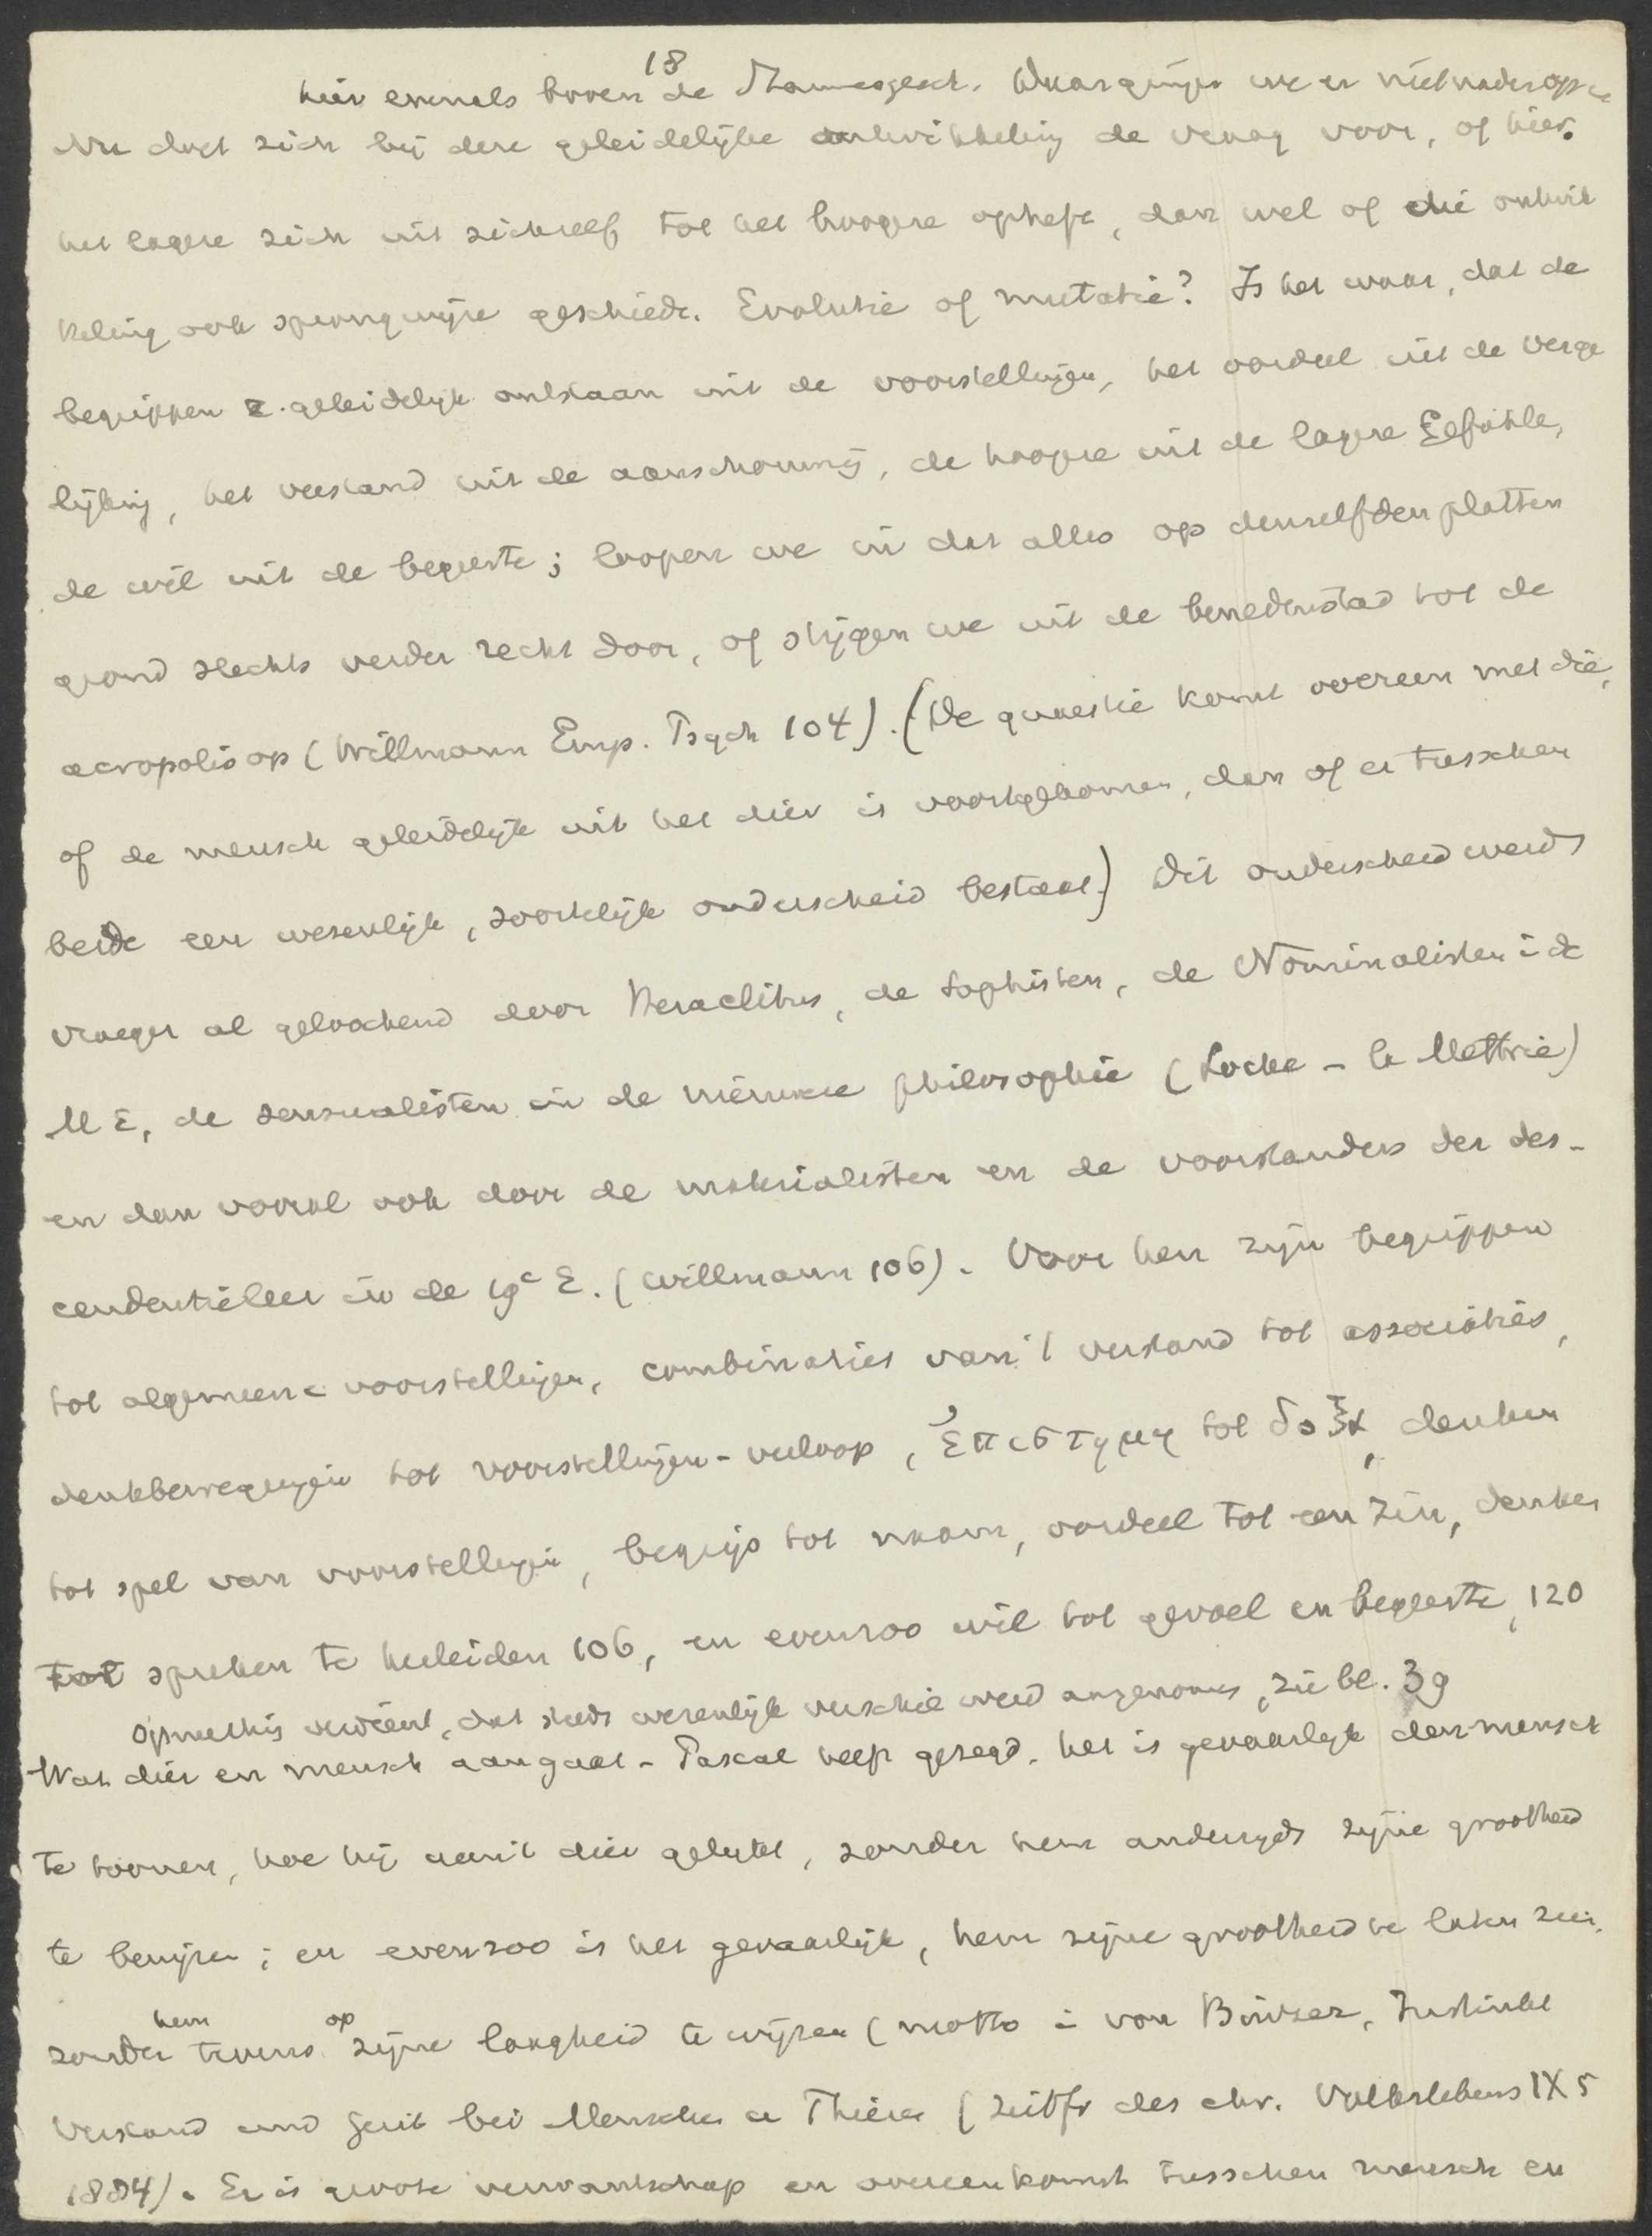 18
hier evenals boven de Waar gingen we er niet nader op in
Nu doet zich bij deze geleidelijke ontwikkeling de vraag voor, of hier
het lagere zich uit zichzelf tot het hoogere opheft, dan wel of die ontwik
keling ook sprongwijze geschiedt. Evolutie of mutatie? Is het waar, dat de
begrippen z. geleidelijk ontstaan uit de voorstellingen, het oordeel uit de verge
lijking, het verstand uit de aanschouwing, de hoogere uit de lagere Gefühle,
de wil uit de begeerte; loopen we in dat alles op denzelfden platten
grond slechts verder recht door, of stijgen we uit de benedenstad tot de
acropolis op (Willmann Emp. Psych 104). (De quaestie komt overeen met die,
of de mensch geleidelijk uit het dier is voortgekomen, dan of er tusschen
beide een wezenlijk, soortelijk onderscheid bestaat) Dit onderscheid werd
vroeger al geloochend door Heraclitus, de sophisten, de Nominalisten i d
M E, de sensualisten in de nieuwe philosophie (Locke - la Mettrie)
en dan vooral ook door de materialisten en de voorstanders der des-
cendentieleer in de 19e E. (Willmann 106). Voor hen zijn begrippen
tot algemeene voorstellingen, combinaties van 't verstand tot associaties,
denkbewegingen tot voorstellingen-verloop, ἐπιστημη tot δοξα, denken
tot spel van voorstellingen, begrip tot naam, oordeel tot een zin, denken
tot spreken te herleiden 106, en evenzoo wil tot gevoel en begeerte, 120
Opmerking verdient, dat steeds wezenlijk verschil werd aangenomen, zie bl. 39
Wat dier en mensch aangaat - Pascal heeft gezegd. het is gevaarlijk den mensch
te toonen, hoe hij aan 't dier gelijkt, zonder hem anderzijds zijne grootheid
te bewijzen; en evenzoo is het gevaarlijk, hem zijne grootheid te laten zien,
zonder hem tevens op zijne laagheid te wijzen (motto i von Instinkt
Verstand und Geist bei Menschen u Thieren (Zeitfr des chr. Volkslebens IX 5
1884). Er is groote verwantschap en overeenkomst tusschen mensch en